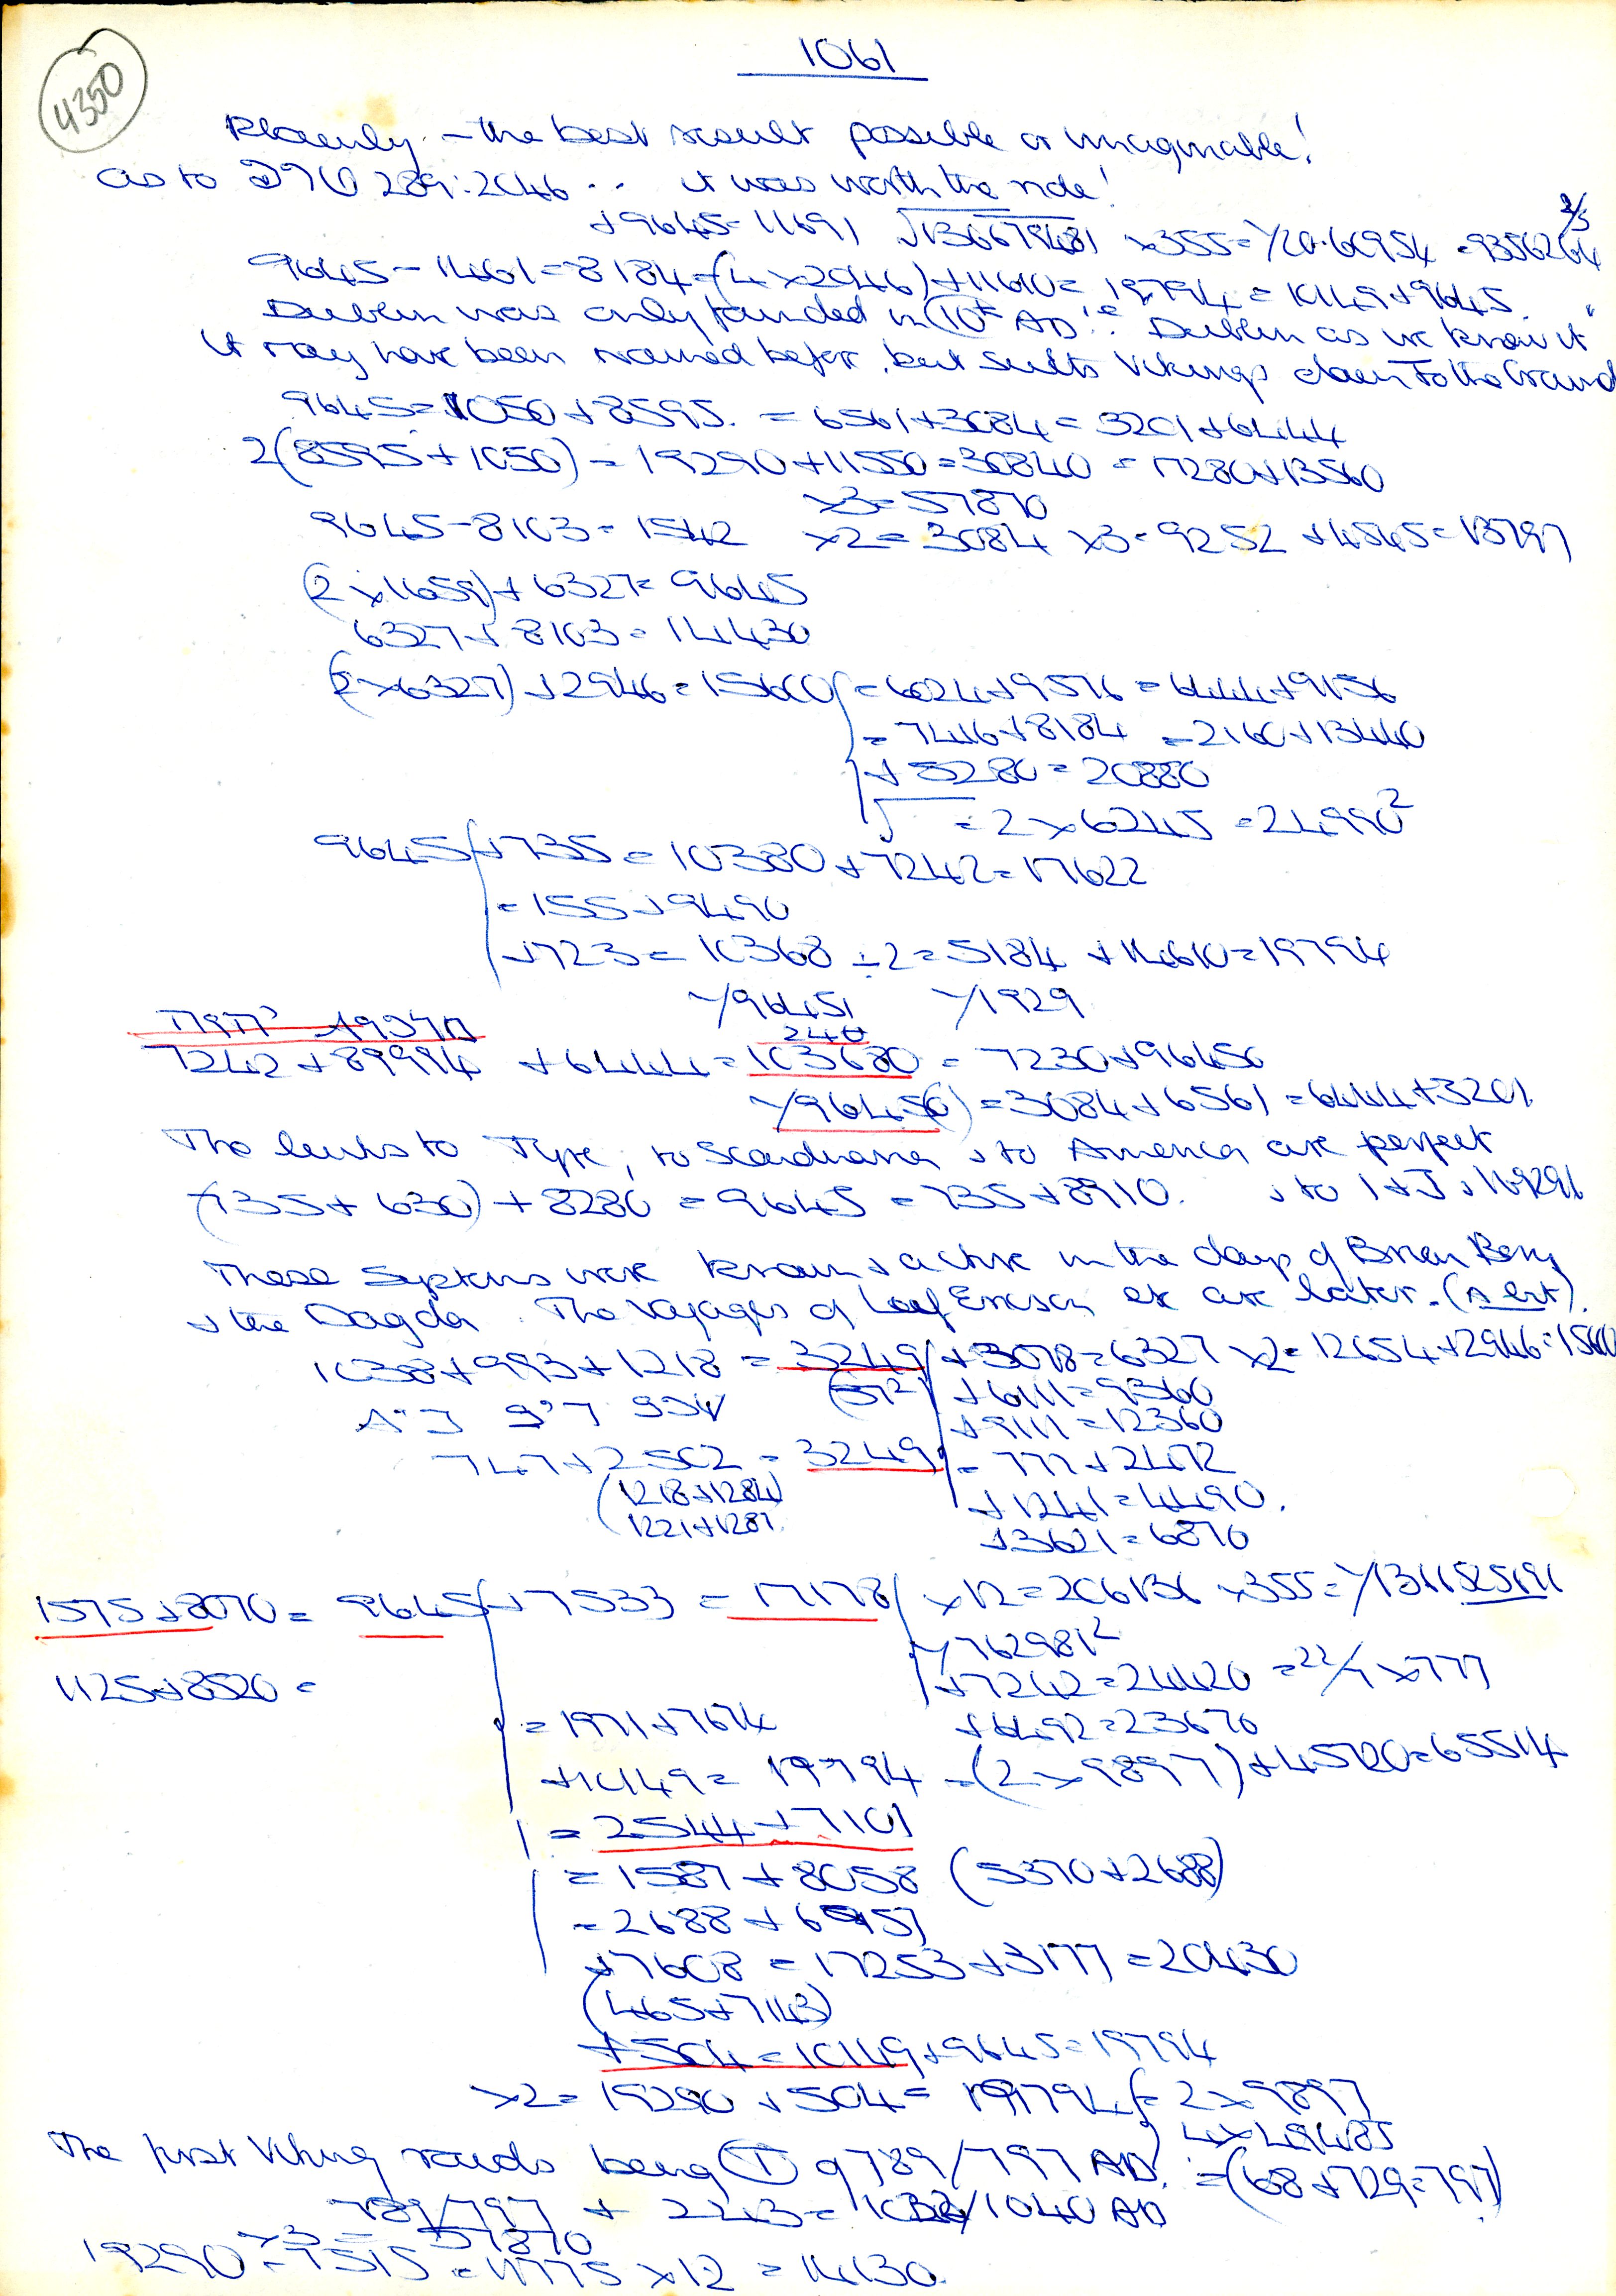 1061
4350
- the best result possible or imaginable!
as to 289:2046 .. it was worth the ride!
+9645=11691 √136679481 ×355=
9645-1461=8184=(4×2046)+11610=19794=10149+9645.
Dublin was only founded in 10th AD!! "Dublin as we know it"
it may have been named before, but suits Vikings down to the Ground
9645=1050+8595.=6561+3084=3201+6444
2(8595+1050)=19290+11550=30840=17280+13560
×3=57870
9645-8103=1542 ×2=3084 ×3=9252 +4545=13797
(2×1659)+6327=9645
6327+8103=14430
(2×6327)+2946=15600=6024+9576=6444+9156
=7416+8184 =2160+13440
+5280=20880
√ =2×6245=24990²
9645+735=10380+7242=17622
=155+9490
+723=10368÷2=5184+14610=19794
√96451 √1929
240
7242+89994+6444=103680=7230+96450
√96450)=3084+6561=6444+3201.
The links to Tyre, to Scandinavia & to America are perfect
(735+630)+8280=9645=735+8910.
These Systems were known & active in the days of Brian Boru
& the Dagda. The Voyages of Leif Ericson etc are later. (A bit).
1038+993+1218=3249+3078=6327 ×2=12654+2946=15600
(57²) +6111=9360
+9111=12360
747+2502=3249=777+2472
(1218+1284) +1241=4490.
1221+1281 +3621=6870
1575+8070=9645+7533=17178 ×12=206136 ×355=
√762981²
1125+8520= +7242=24420=22/7×777
=1971+7674 +6492=23670
+10149=19794=(2×9897)+45720=65514
=2544+7101
=1587+8058 (5370+2688)
=2688+6957
+7608=17253+3177=20430
(465+7143)
+504=10149+9645=19794
×2=19290+504=19794=2×9897
4×49485
The first Viking raids being (T) of 789/797 AD. =(68+729=797)
789/797 + 243=1032/1040 AD
×3=57870
19290-7515=11775×12=14130.